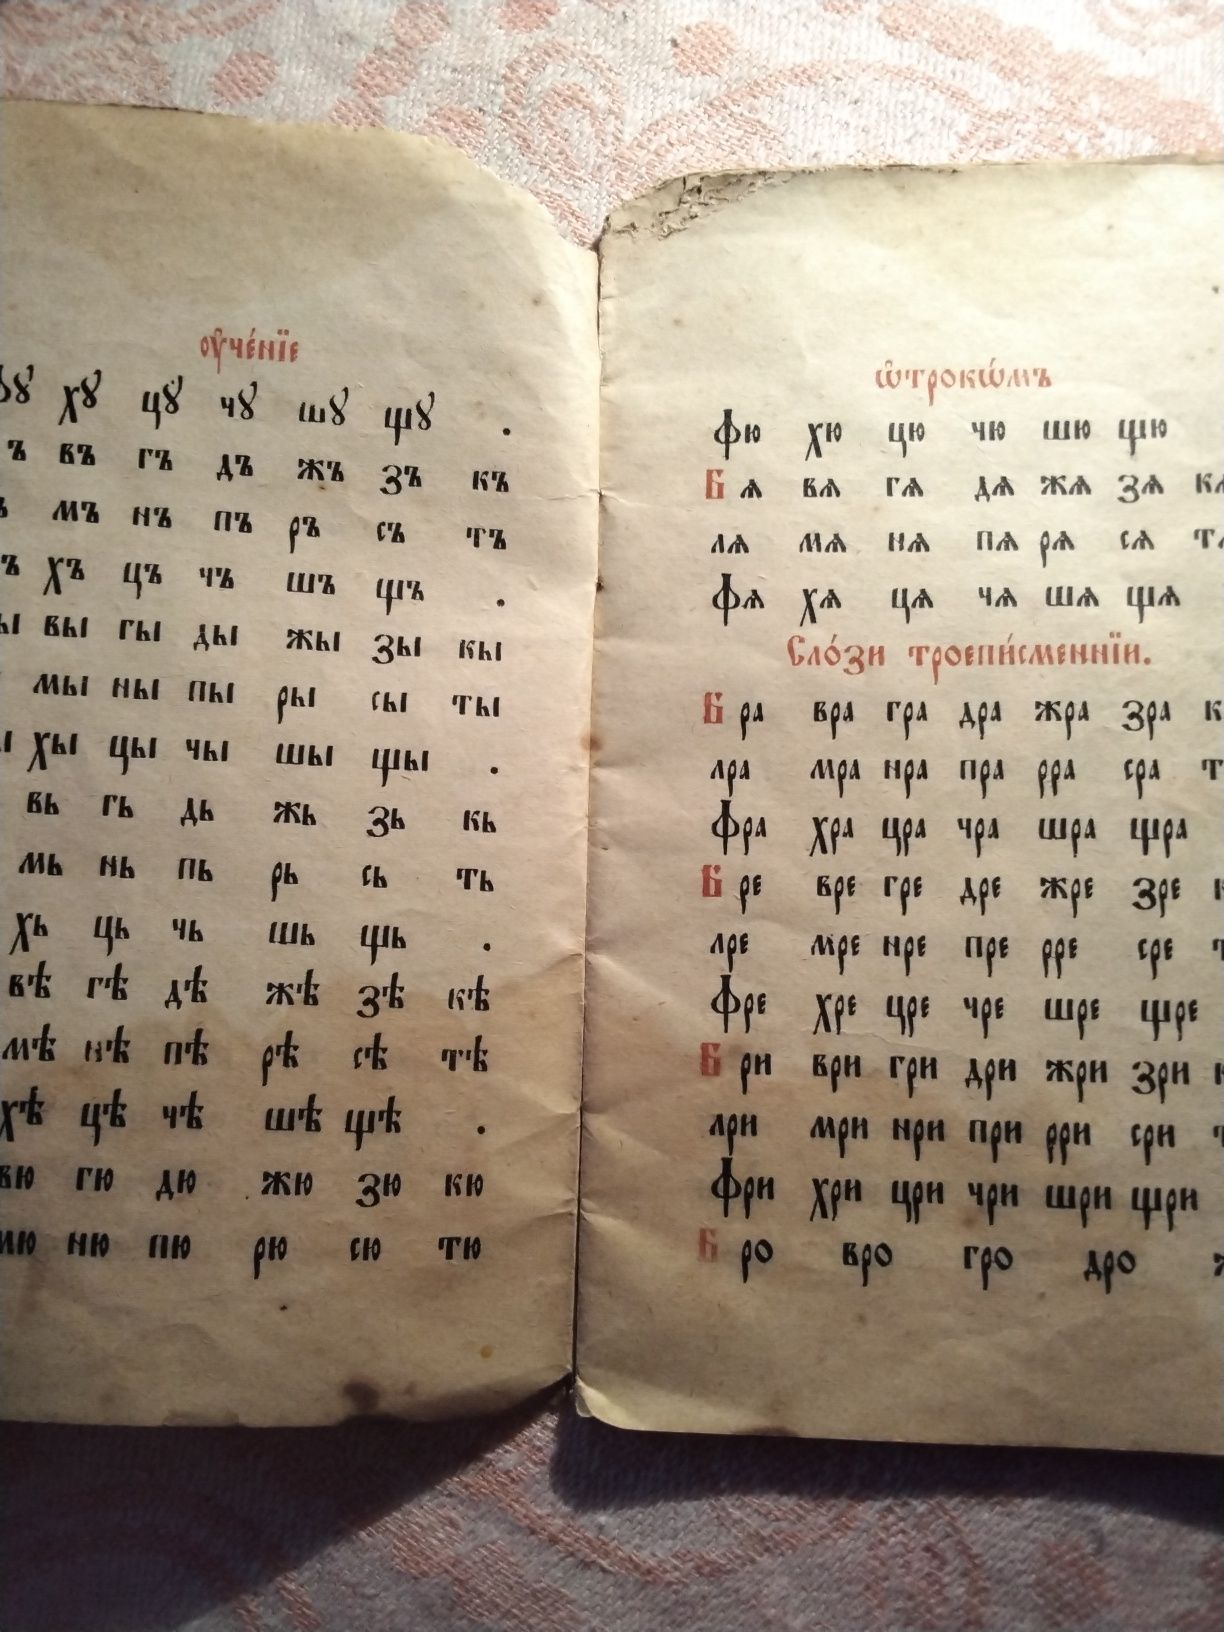 оу҆че́нїе
хꙋ цꙋ чꙋ шꙋ щꙋ .
ъ въ гъ дъ жъ зъ къ
мъ нъ пъ ръ съ тъ
хъ цъ чъ шъ щъ .
вы гы ды жы зы кы
мы ны пы ры сы ты
хы цы чы шы щы .
вь гь дь жь зь кь
мь нь пь рь сь ть
хь ць чь шь щь .
вѣ гѣ дѣ жѣ зѣ кѣ
мѣ нѣ пѣ рѣ сѣ тѣ
хѣ цѣ чѣ шѣ щѣ .
вю гю дю жю зю кю
ню пю рю сю тю
ѻ҆трокѡ́мъ
фю хю цю чю шю щю
Бѧ вѧ гѧ дѧ жѧ зѧ кѧ
лѧ мѧ нѧ пѧ рѧ сѧ
Фѧ хѧ цѧ чѧ шѧ щѧ
Сло́зи троепи́сменнїи.
Бра вра гра дра жра зра
лра мра нра пра рра сра
Фра хра цра чра шра щра
Бре вре гре дре жре зре
лре мре нре пре рре сре
Фре хре цре чре шре щре
Бри ври гри дри жри зри
лри мри нри при рри сри
Фри хри цри чри шри щри
Бро вро гро дро